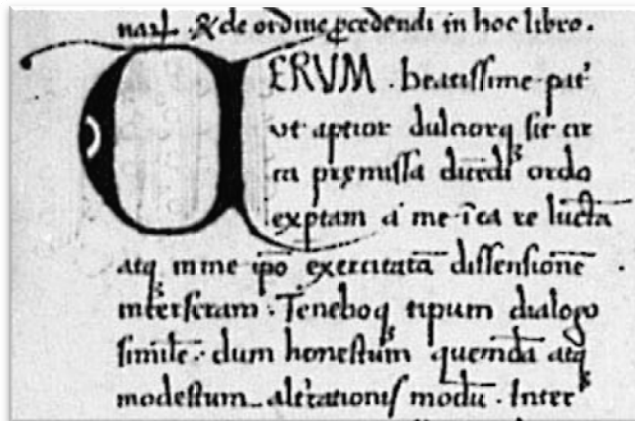 ⁊ de ordine p̄cedendi in hoc libro.
VERUM. beatissime pat̉
ut aptior dulciorq; sit cir
ca pręmissa dicēdi ordo
exptam a me ī ea re luctā
atq; in me ip̄o exercitatā dissensionē
interseram. Teneboq; tipum dialogo
simile. dum honestum quemdā atq;
modestum altercationis modū. Inter